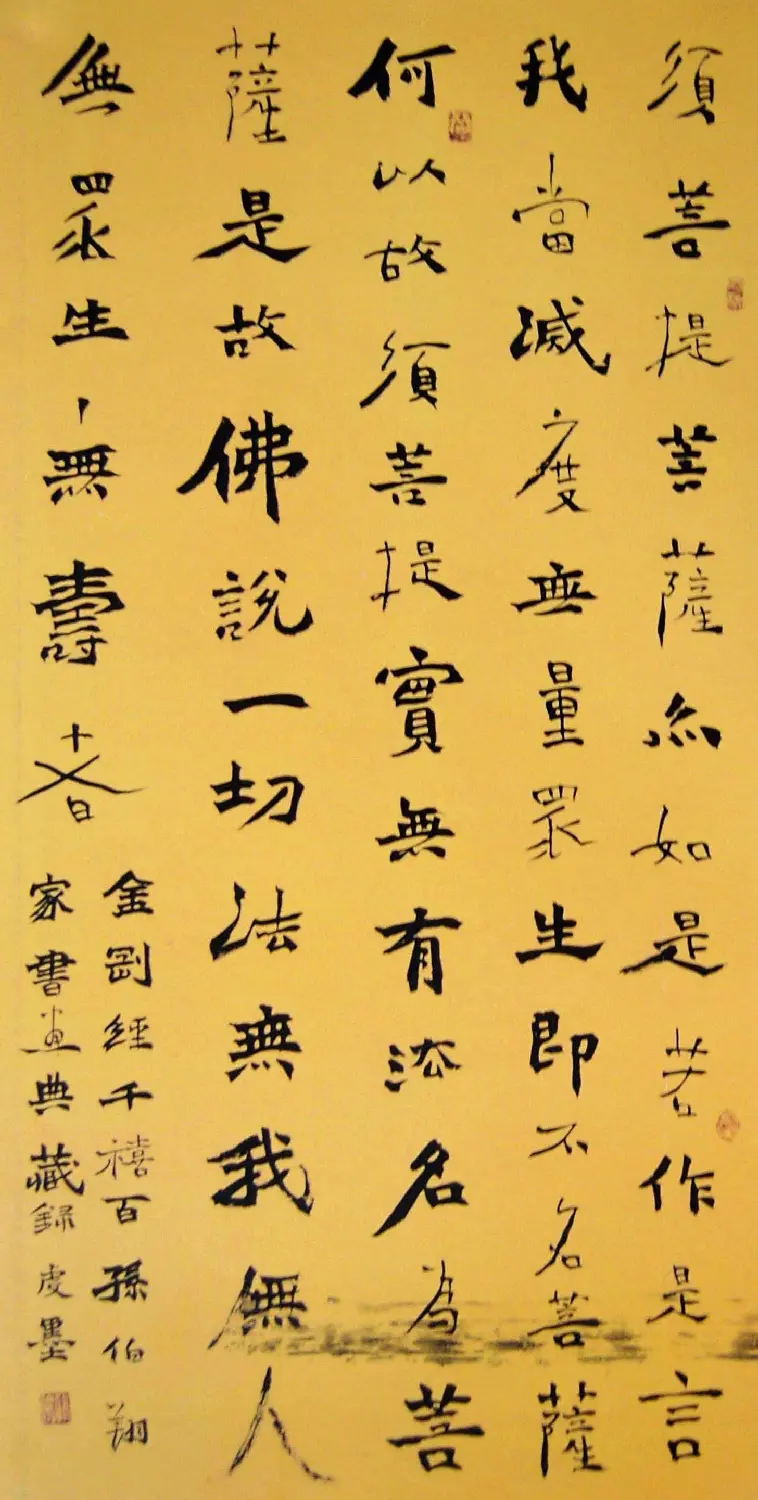 須菩提菩薩亦如是若作是言
我當滅度無量眾生即不名菩薩
何以故須菩提實無有法名為菩
薩是故佛說一切法無我無人
無眾生丶無壽者
金剛經千禧百孫伯翔
家書畫典藏錄虔墨